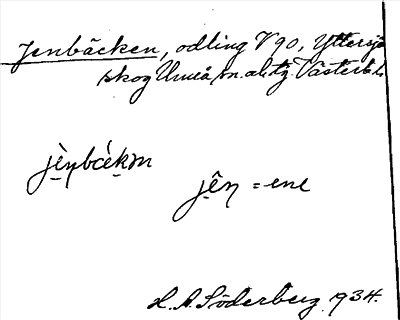 Jenbäcken, odling V 90, Yttersjö
skog Umeå, m. ab tg. Västerb. l.
jèn̥bǽkɷn
jên = ene
L. A. Söderberg 1934.